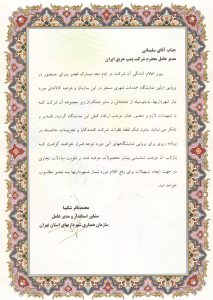 جناب آقای سلیمانی
مدیر عامل محترم شرکت پمپ حریق ایران
پیرو اعلام آمادگی آن شرکت در ایام دهه مبارک فجر برای حضور در
برپایی اولین نمایشگاه خدمات شهری مستقر در این سازمان و عرضه کالاهای مورد
نیاز شهرداریها، بدینوسیله از جنابعالی و سایر همکاران زیر مجموعه آن شرکت که
با تمهیدات لازم و حضور فعال موجب ارتقاء کیفی این نمایشگاه گردیدند تقدیر و
تشکر می نماید. بدون شک نقطه نظرات شرکت کنندگان و تجربیات حاصله در
برنامه ریزی برای برپایی نمایشگاههای آتی مورد توجه قرار خواهند گرفت که
بازتاب آن موجب شناسایی بیشتر محصولات عرضه شده و تقویت مبادلات تجاری
در جهت ایجاد تسهیلات برای رفع اقلام مورد نیاز شهرداریها به نحو مطلوب
خواهد شد.
محمدباقر شکیبا
مشاور استاندار و مدیر عامل
سازمان همیاری شهرداریهای استان تهران